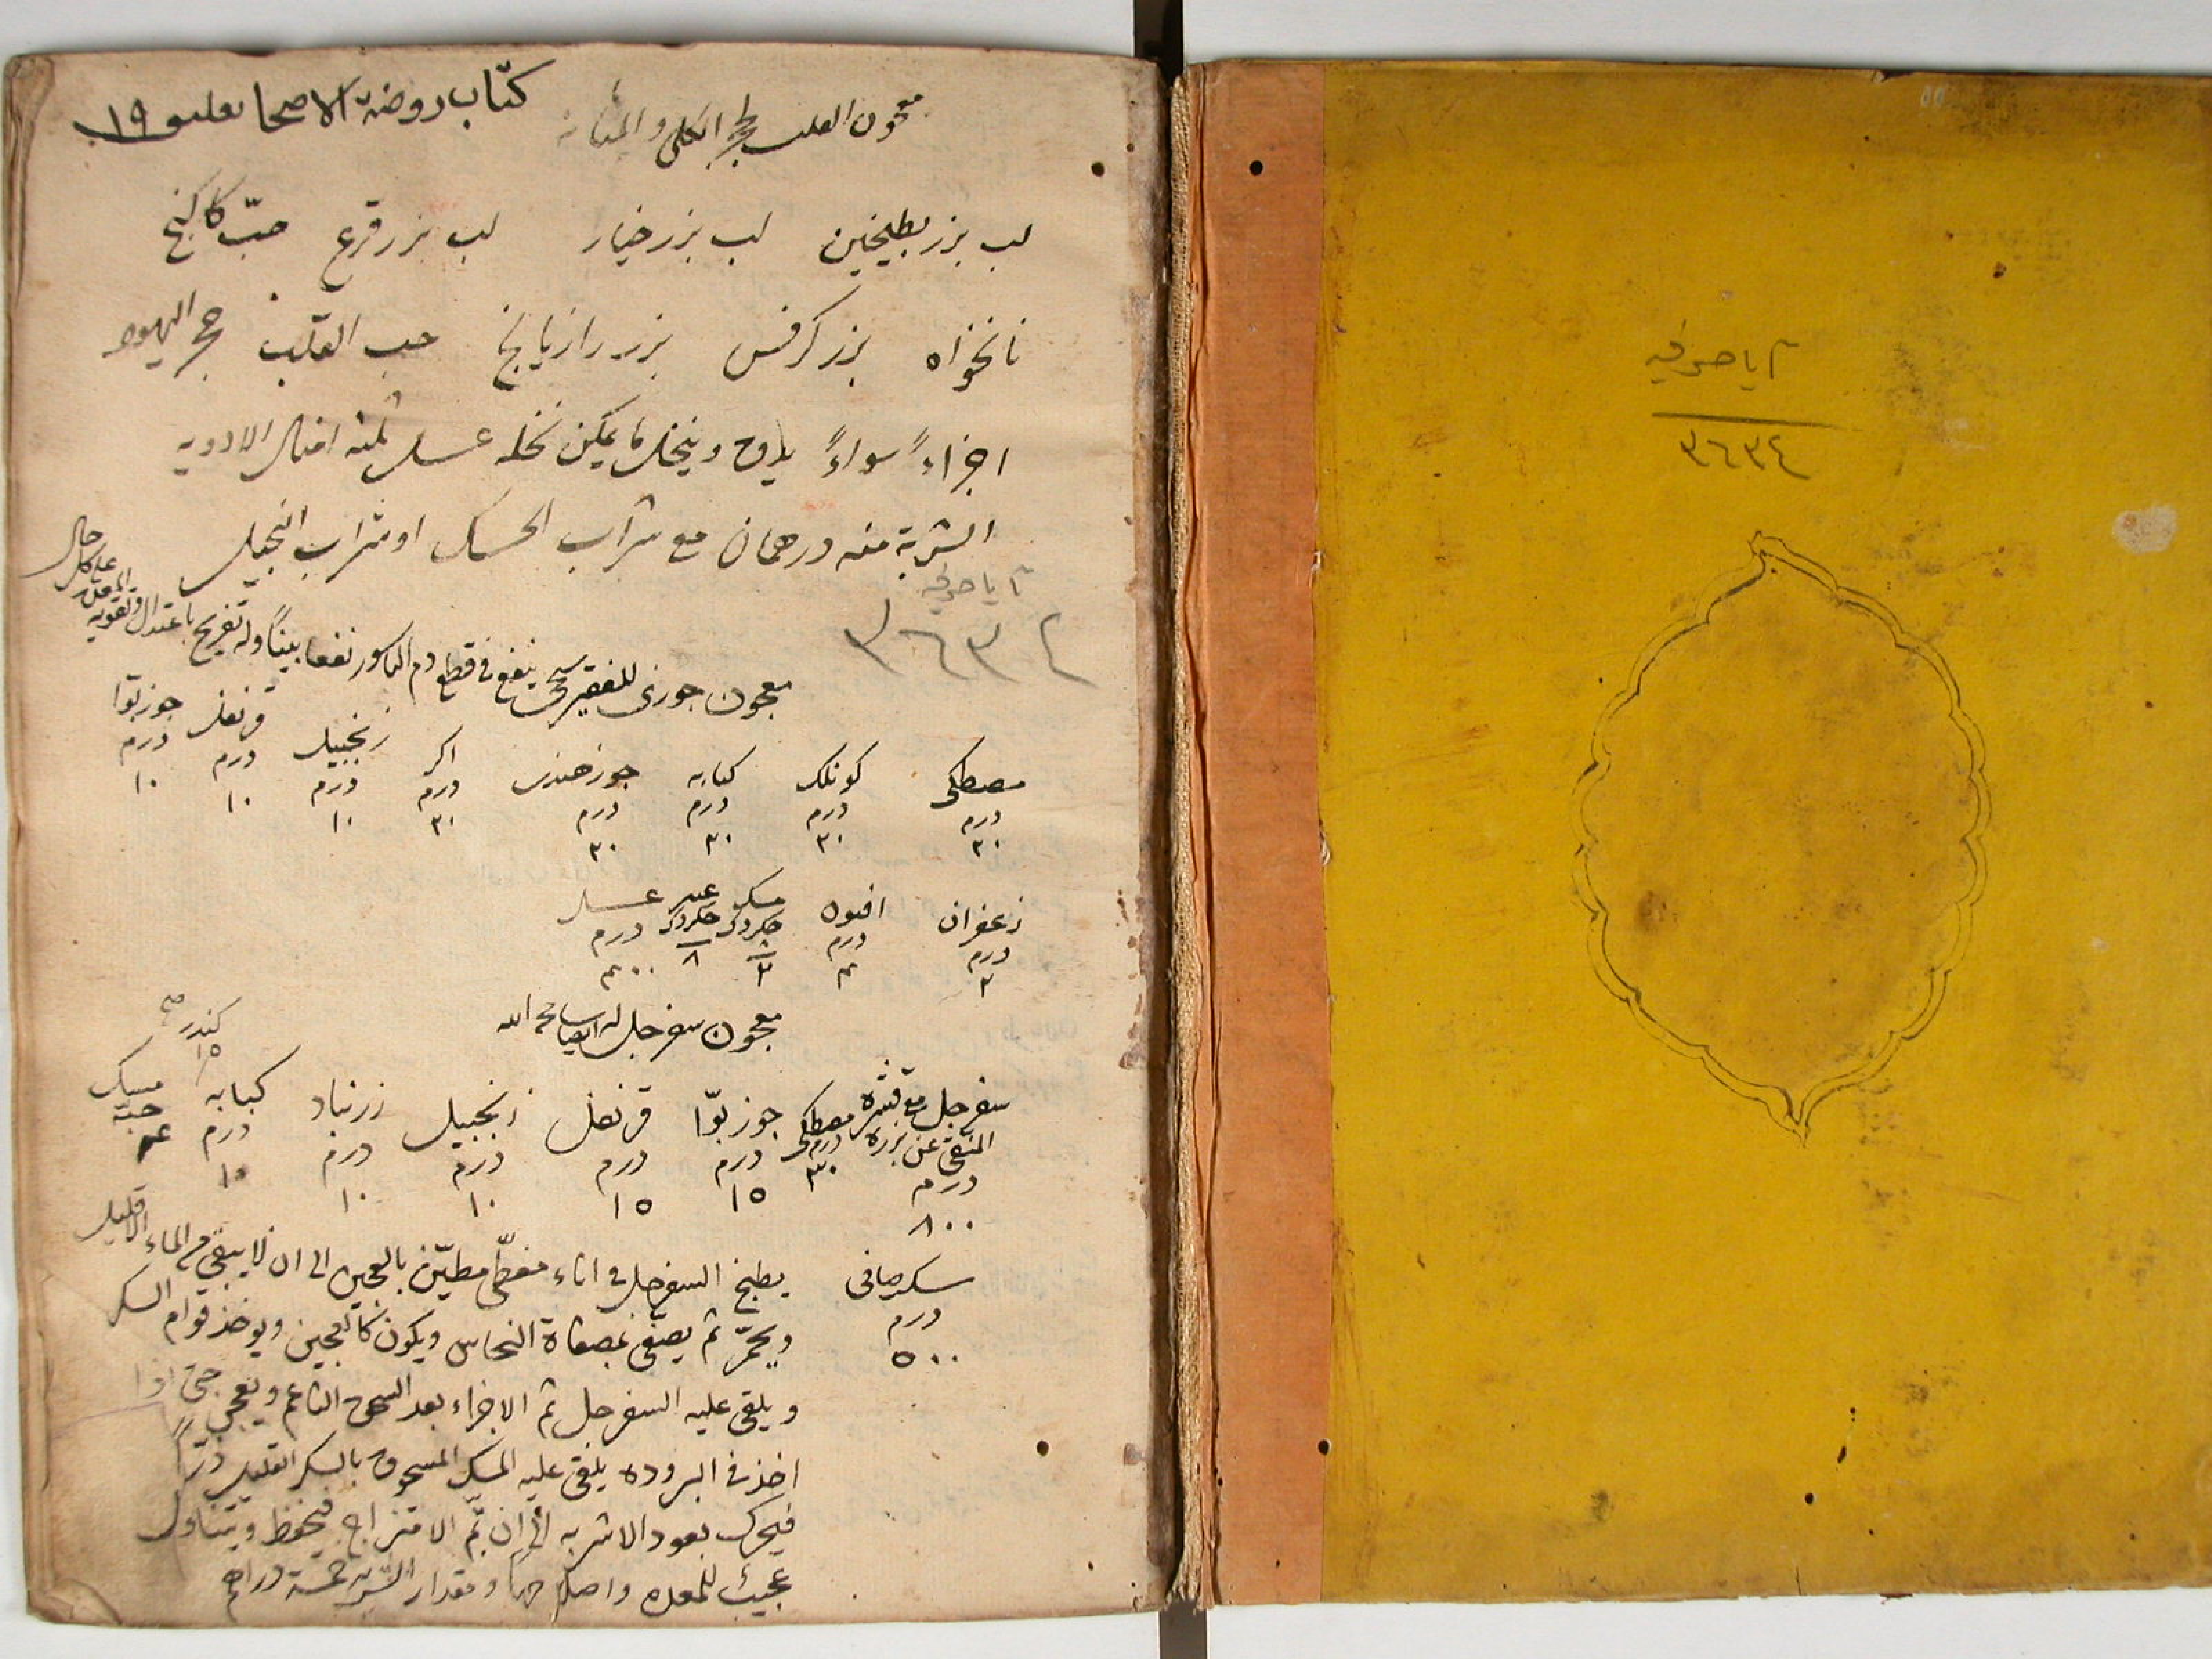 آيا صوفيه
٣٦٣٤
كتاب روضة الاصحا
١٩
معجون القلب لحجر الكلى والمثانة
لب بزر بطيخين لب بزر خيار لب بزر قرع حبّ كاكنج
نانخواه بزر كرفس بزر رازيانج حب القلب حجر اليهود
اجزاءً سواءً يدق وينخل ما يمكن نخله عسل ثلثه امثال الادويه
الشربة منه درهمان مع شراب الحسك او شراب النجيل
آيا صوفيه
٣٦٣٤
معجون جوزى للفقير ينفع فى قطع دم الباسور نفعا بيناً وله تفريح باعتدال وتقويه
على كل حال
مصطكى كونلك كبابه جوز هندى اكر زنجبيل قرنفل جوز بوّا
درم درم درم درم درم درم درم درم
٣٠ ٣٠ ٣٠ ٣٠ ٣٠ ١٠ ١٠ ١٠
زعفران افيون مسك عنبر عسل
درم درم درم
٤٠٠ ٨
معجون سفرجل له ايضا سامحه الله
كندر صح
١٥
سفرجل مع قشره مصطكى جوز بوّا قرنفل زنجبيل زرنباد كبابه مسك
المنقى عن بزره درم درم درم درم درم درم حبّه
درم ٣٠ ١٥ ١٥ ١٠ ١٠ ١٠
٨٠٠
سكر صافى يطبخ السفرجل فى اناء مغطّى مطيّن بالعجين الى ان لا يبقى من الماء الا قليل
درم ويحمّر ثم يصفى بمصفاة النحاس ويكون كالعجين ويوخذ قوام السكر
٥٠٠
ويلقى عليه السفرجل ثم الاجزاء بعد السحق الناعم ويعجن حتى اذا
اخذ فى البروده يلقى عليه المسك المسحوق بالسكر القليل ذرّاً
فيحرك بعود الاشربه الى ان تمّ الامتزاج فيحفظ ويتناول
عجيب للمعده واصلاحها ومقدار الشربة خمسة دراهم